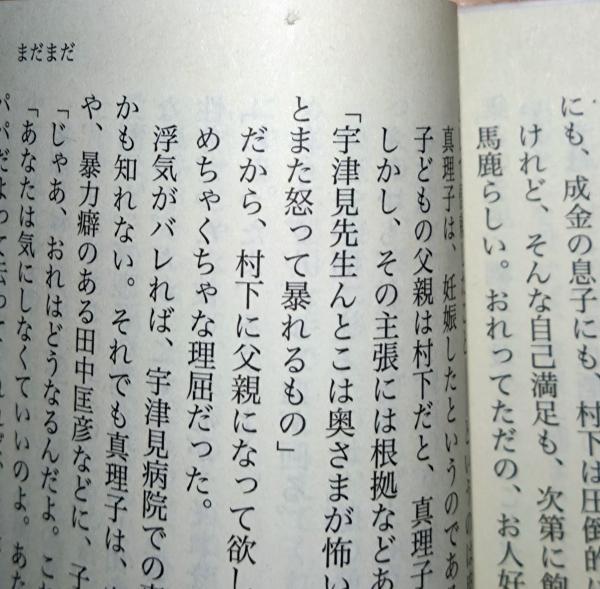 にも、成金の息子にも、村下は圧倒的に
けれど、そんな自己満足も、次第に飽
馬鹿らしい。おれってただの、お人好
まだまだ
真理子は、妊娠したというのである
子どもの父親は村下だと、真理子
しかし、その主張には根拠などあ
「宇津見先生んとこは奥さまが怖い
とまた怒って暴れるもの」
だから、村下に父親になって欲し
めちゃくちゃな理屈だった。
浮気がバレれば、宇津見病院での
かも知れない。それでも真理子は、
や、暴力癖のある田中匡彦などに、子
「じゃあ、おれはどうなるんだよ。こ
「あなたは気にしなくていいのよ。あ
パパだよって